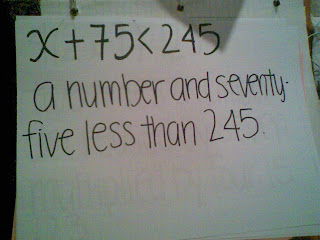 x+75<245
a number and seventy-
five less than 245.